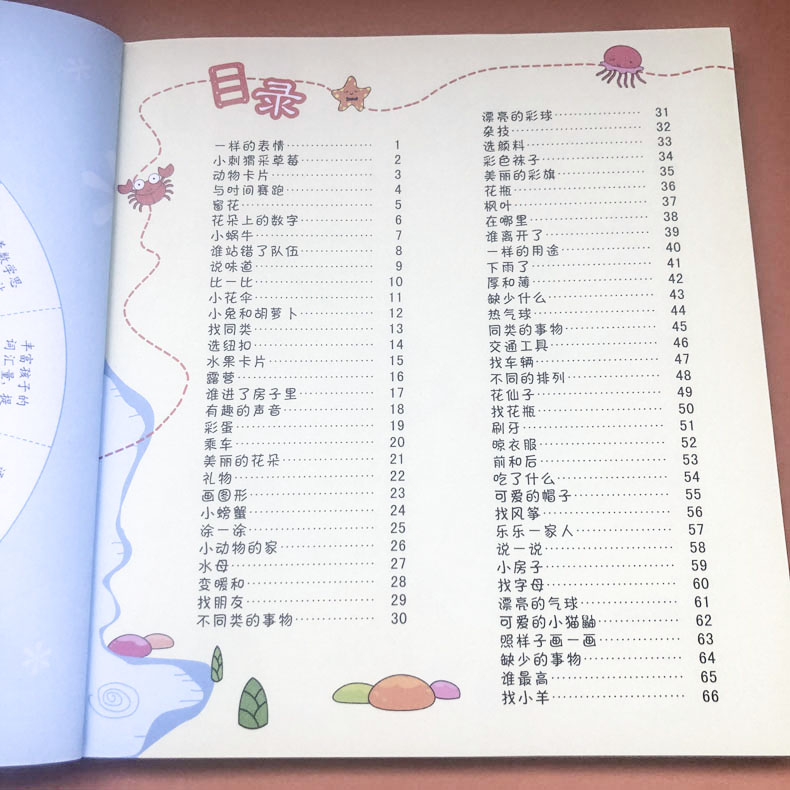 目录
一样的表情 1
小刺猬采草莓 2
动物卡片 3
与时间赛跑 4
窗花 5
花朵上的数字 6
小蜗牛 7
谁站错了队伍 8
说味道 9
比一比 10
小花伞 11
小兔和胡萝卜 12
找同类 13
选纽扣 14
水果卡片 15
露营 16
谁进了房子里 17
有趣的声音 18
彩蛋 19
乘车 20
美丽的花朵 21
礼物 22
画图形 23
小螃蟹 24
涂一涂 25
小动物的家 26
水母 27
变暖和 28
找朋友 29
不同类的事物 30
漂亮的彩球 31
杂技 32
选颜料 33
彩色袜子 34
美丽的彩旗 35
花瓶 36
枫叶 37
在哪里 38
谁离开了 39
一样的用途 40
下雨了 41
厚和薄 42
缺少什么 43
热气球 44
同类的事物 45
交通工具 46
找车辆 47
不同的排列 48
花仙子 49
找花瓶 50
刷牙 51
晾衣服 52
前和后 53
吃了什么 54
可爱的帽子 55
找风筝 56
乐乐一家人 57
说一说 58
小房子 59
找字母 60
漂亮的气球 61
可爱的小猫鼬 62
照样子画一画 63
缺少的事物 64
谁最高 65
找小羊 66
丰富孩子的
词汇量，提